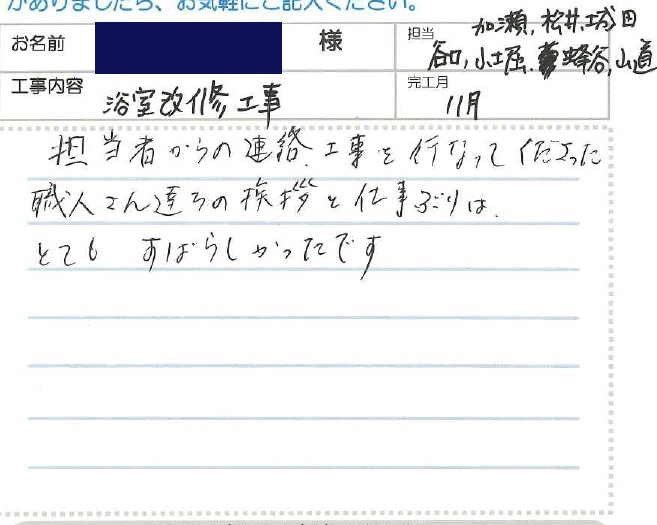 がありましたら、お気軽にご記入ください。
お名前 様 担当 加瀬、松井、城田
谷口、小堀、蜂谷、山道
工事内容 浴室改修工事 完工月 11月
担当者からの連絡、工事を行なってくださった
職人さん達ちの挨拶と仕事ぶりは、
とても すばらしかったです